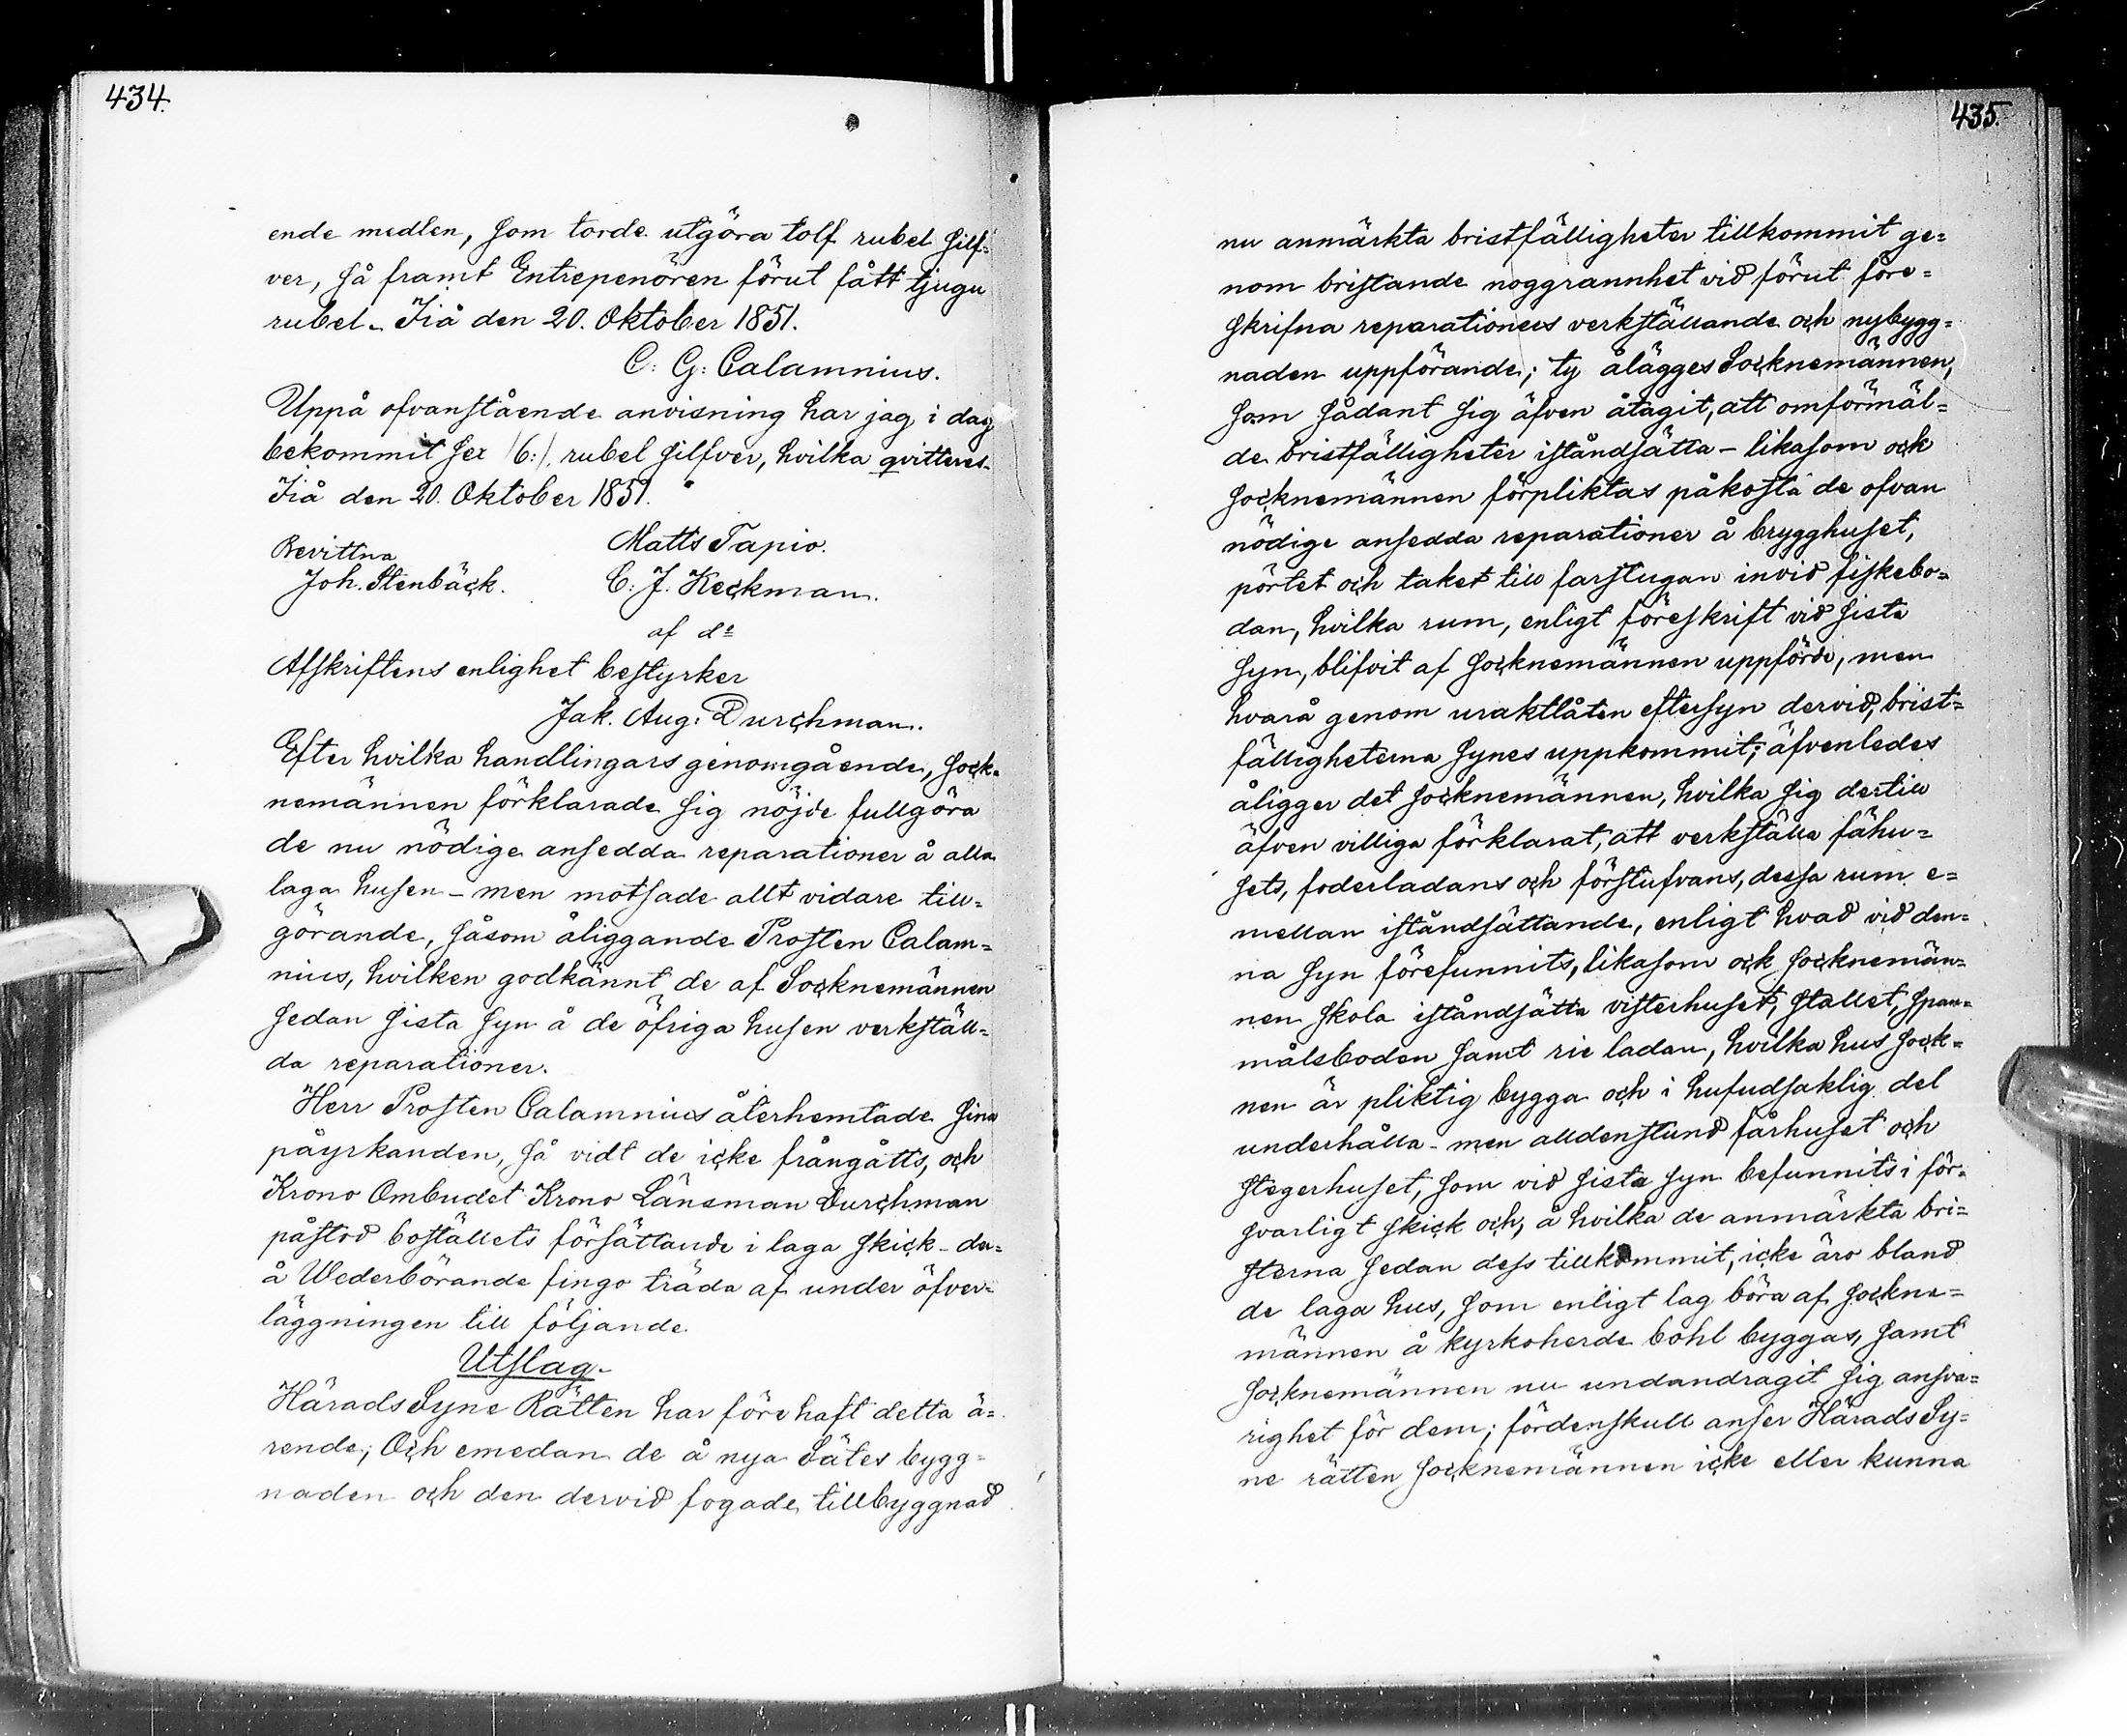 434.
ende medlen, som torde utgöra tolf rubel silf=
ver, så framt Entrepenören förut fått tjugu
rubel. Iiå den 20. Oktober 1851.
C: G: Calamnius.
Uppå ofvanstående anvisning har jag i dag
bekommit sex /6:/. rubel silfver, hvilka qvitteres.
Iiå den 20. Oktober 1851.
Bevittna
Matts Tapio.
Joh. Stenbäck.
C: J. Keckman.
af do
Afskriftens enlighet bestyrker
Jak. Aug: Durchman.
Efter hvilka handlingars genomgående, sock=
nemännen förklarade sig nöjde fullgöra
de nu nödige ansedda reparationer å alla
laga husen – men motsade allt vidare till=
görande, såsom åliggande Prosten Calam=
nius, hvilken godkännt de af Socknemännen
sedan sista syn å de öfriga husen verkställ=
da reparationer.
Herr Prosten Calamnius återhemtade sina
påyrkanden, så vidt de icke frångåtts, och
Krono Ombudet Krono Länsman Durchman
påstod boställets försättande i laga skick – der=
å Wederbörande fingo träda af under öfver=
läggningen till följande
Utslag.
Härads Syne Rätten har förehaft detta ä=
rende; Och emedan de å nya Sätes bygg=
naden och den dervid fogade tillbyggnad
435.
nu anmärkta bristfälligheter tillkommit ge=
nom bristande noggrannhet vid förut före=
skrifna reparationers verkställande och nybygg=
naden uppförande; ty ålägges Socknemännen,
som sådant sig äfven åtagit, att omförmäl=
de bristfälligheter iståndsätta – likasom ock
socknemännen förpliktas påkosta de ofvan
nödige ansedda reparationer å brygghuset,
pörtet och taket till farstugan invid fiskebo=
dan, hvilka rum, enligt föreskrift vid sista
syn, blifvit af socknemännen uppförde, men
hvarå genom uraktlåten eftersyn dervid, brist=
fälligheterna synes uppkommit; äfvenledes
åligger det socknemännen, hvilka sig dertill
äfven villiga förklarat, att verkställa fähu=
sets, foderladans och förstufvans, dessa rum e=
mellan iståndsättande, enligt hvad vid den=
na syn förefunnits, likasom ock socknemän=
nen skola iståndsätta visterhuset, stallet, span=
målsboden samt rie ladan, hvilka hus sock=
nen är pliktig bygga och i hufudsaklig del
underhålla – men alldenstund fårhuset och
stegerhuset, som vid sista syn befunnits i för=
svarligt skick och, å hvilka de anmärkta bri=
sterna sedan dess tillkommit, icke äro bland
de laga hus, som enligt lag böra af sockne=
männen å kyrkoherde bohl byggas, samt
socknemännen nu undandragit sig ansva=
righet för dem; fördenskull anser Härads Sy=
ne rätten socknemännen icke eller kunna